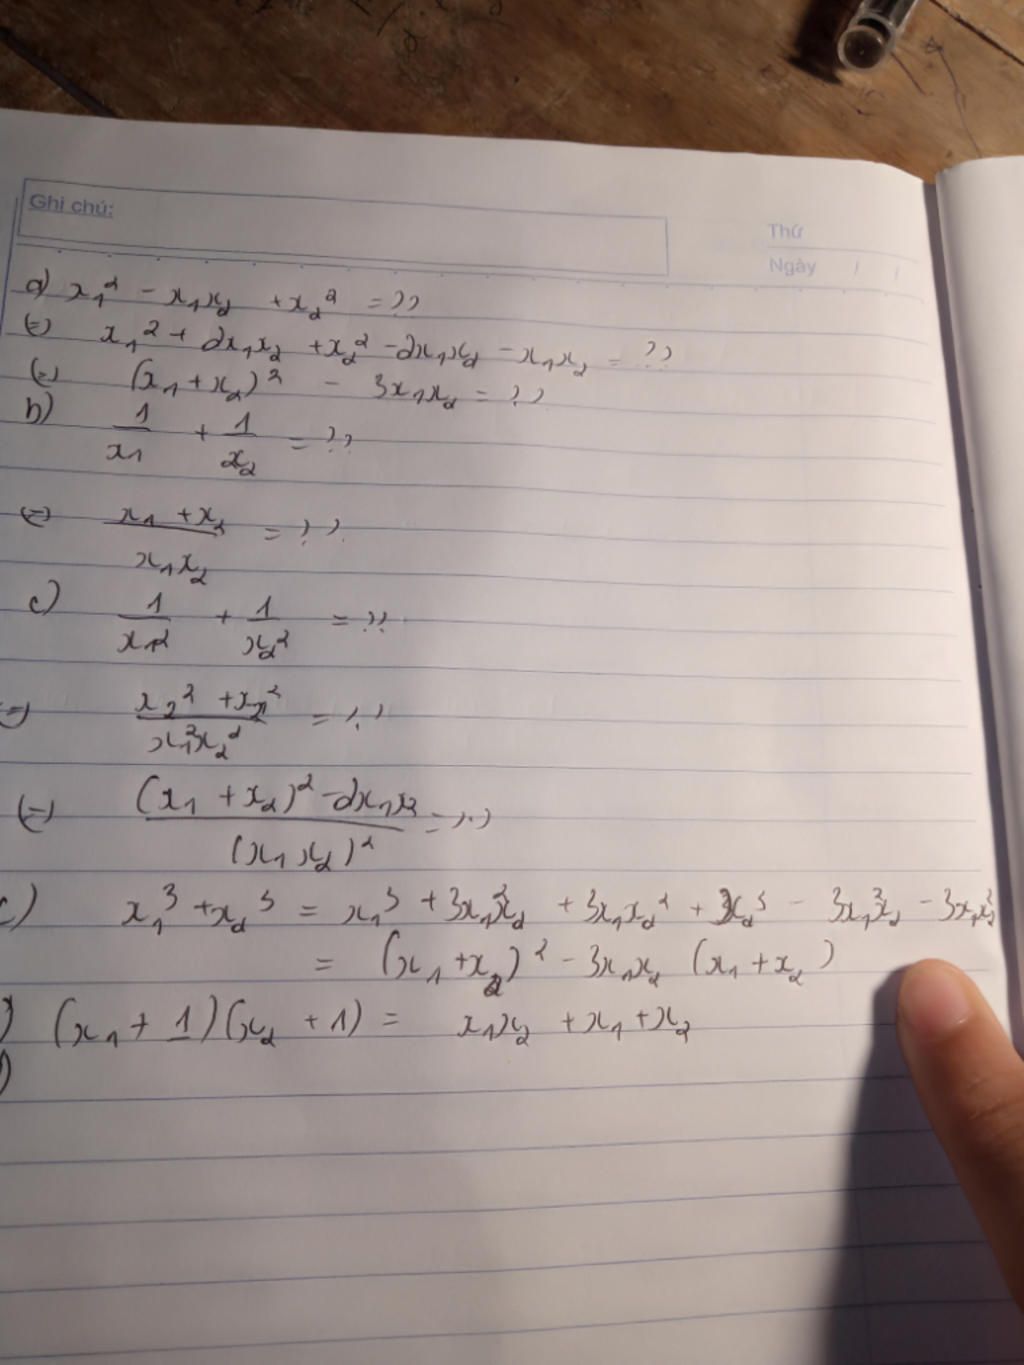 Ghi chú:
Thứ
Ngày / /
a) x₁² - x₁x₂ + x₂² = ??
(=) x₁² + 2x₁x₂ + x₂² - 2x₁x₂ - x₁x₂ = ??
(=) (x₁ + x₂)² - 3x₁x₂ = ??
b) 1/x₁ + 1/x₂ = ??
(=) (x₁ + x₂)/(x₁x₂) = ??
c) 1/x₁² + 1/x₂² = ??
(=) (x₂² + x₁²)/(x₁²x₂²) = ??
(=) ((x₁ + x₂)² - 2x₁x₂)/(x₁x₂)² = ??
c) x₁³ + x₂³ = x₁³ + 3x₁²x₂ + 3x₁x₂² + x₂³ - 3x₁²x₂ - 3x₁x₂²
= (x₁ + x₂)² - 3x₁x₂ (x₁ + x₂)
) (x₁ + 1)(x₂ + 1) = x₁x₂ + x₁ + x₂
)